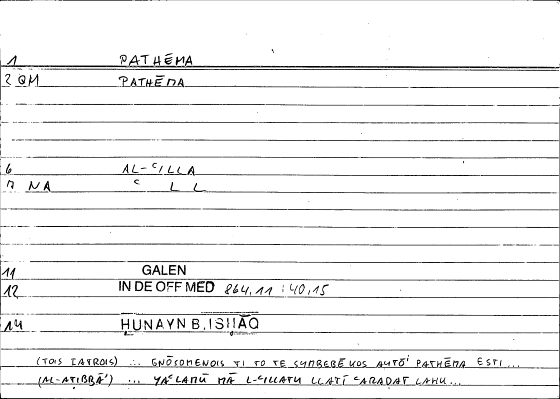 1 PATHĒMA
2 QM PATHĒMA
6 AL-ʿILLA
7 NA ʿ L L
11 GALEN
12 IN DE OFF MED 864,11 : 40,15
14 ḤUNAYN B. ISḤĀQ
(TOIS IATROIS) ... GNŌSOMENOIS TI TO TE SUMBEBĒKOS AUTŌ' PATHĒMA ESTI...
(AL-ATIBBĀʾ) ... YAʿLAMŪ MĀ L-ʿILLATU LLATĪ ʿARADAT LAHU...